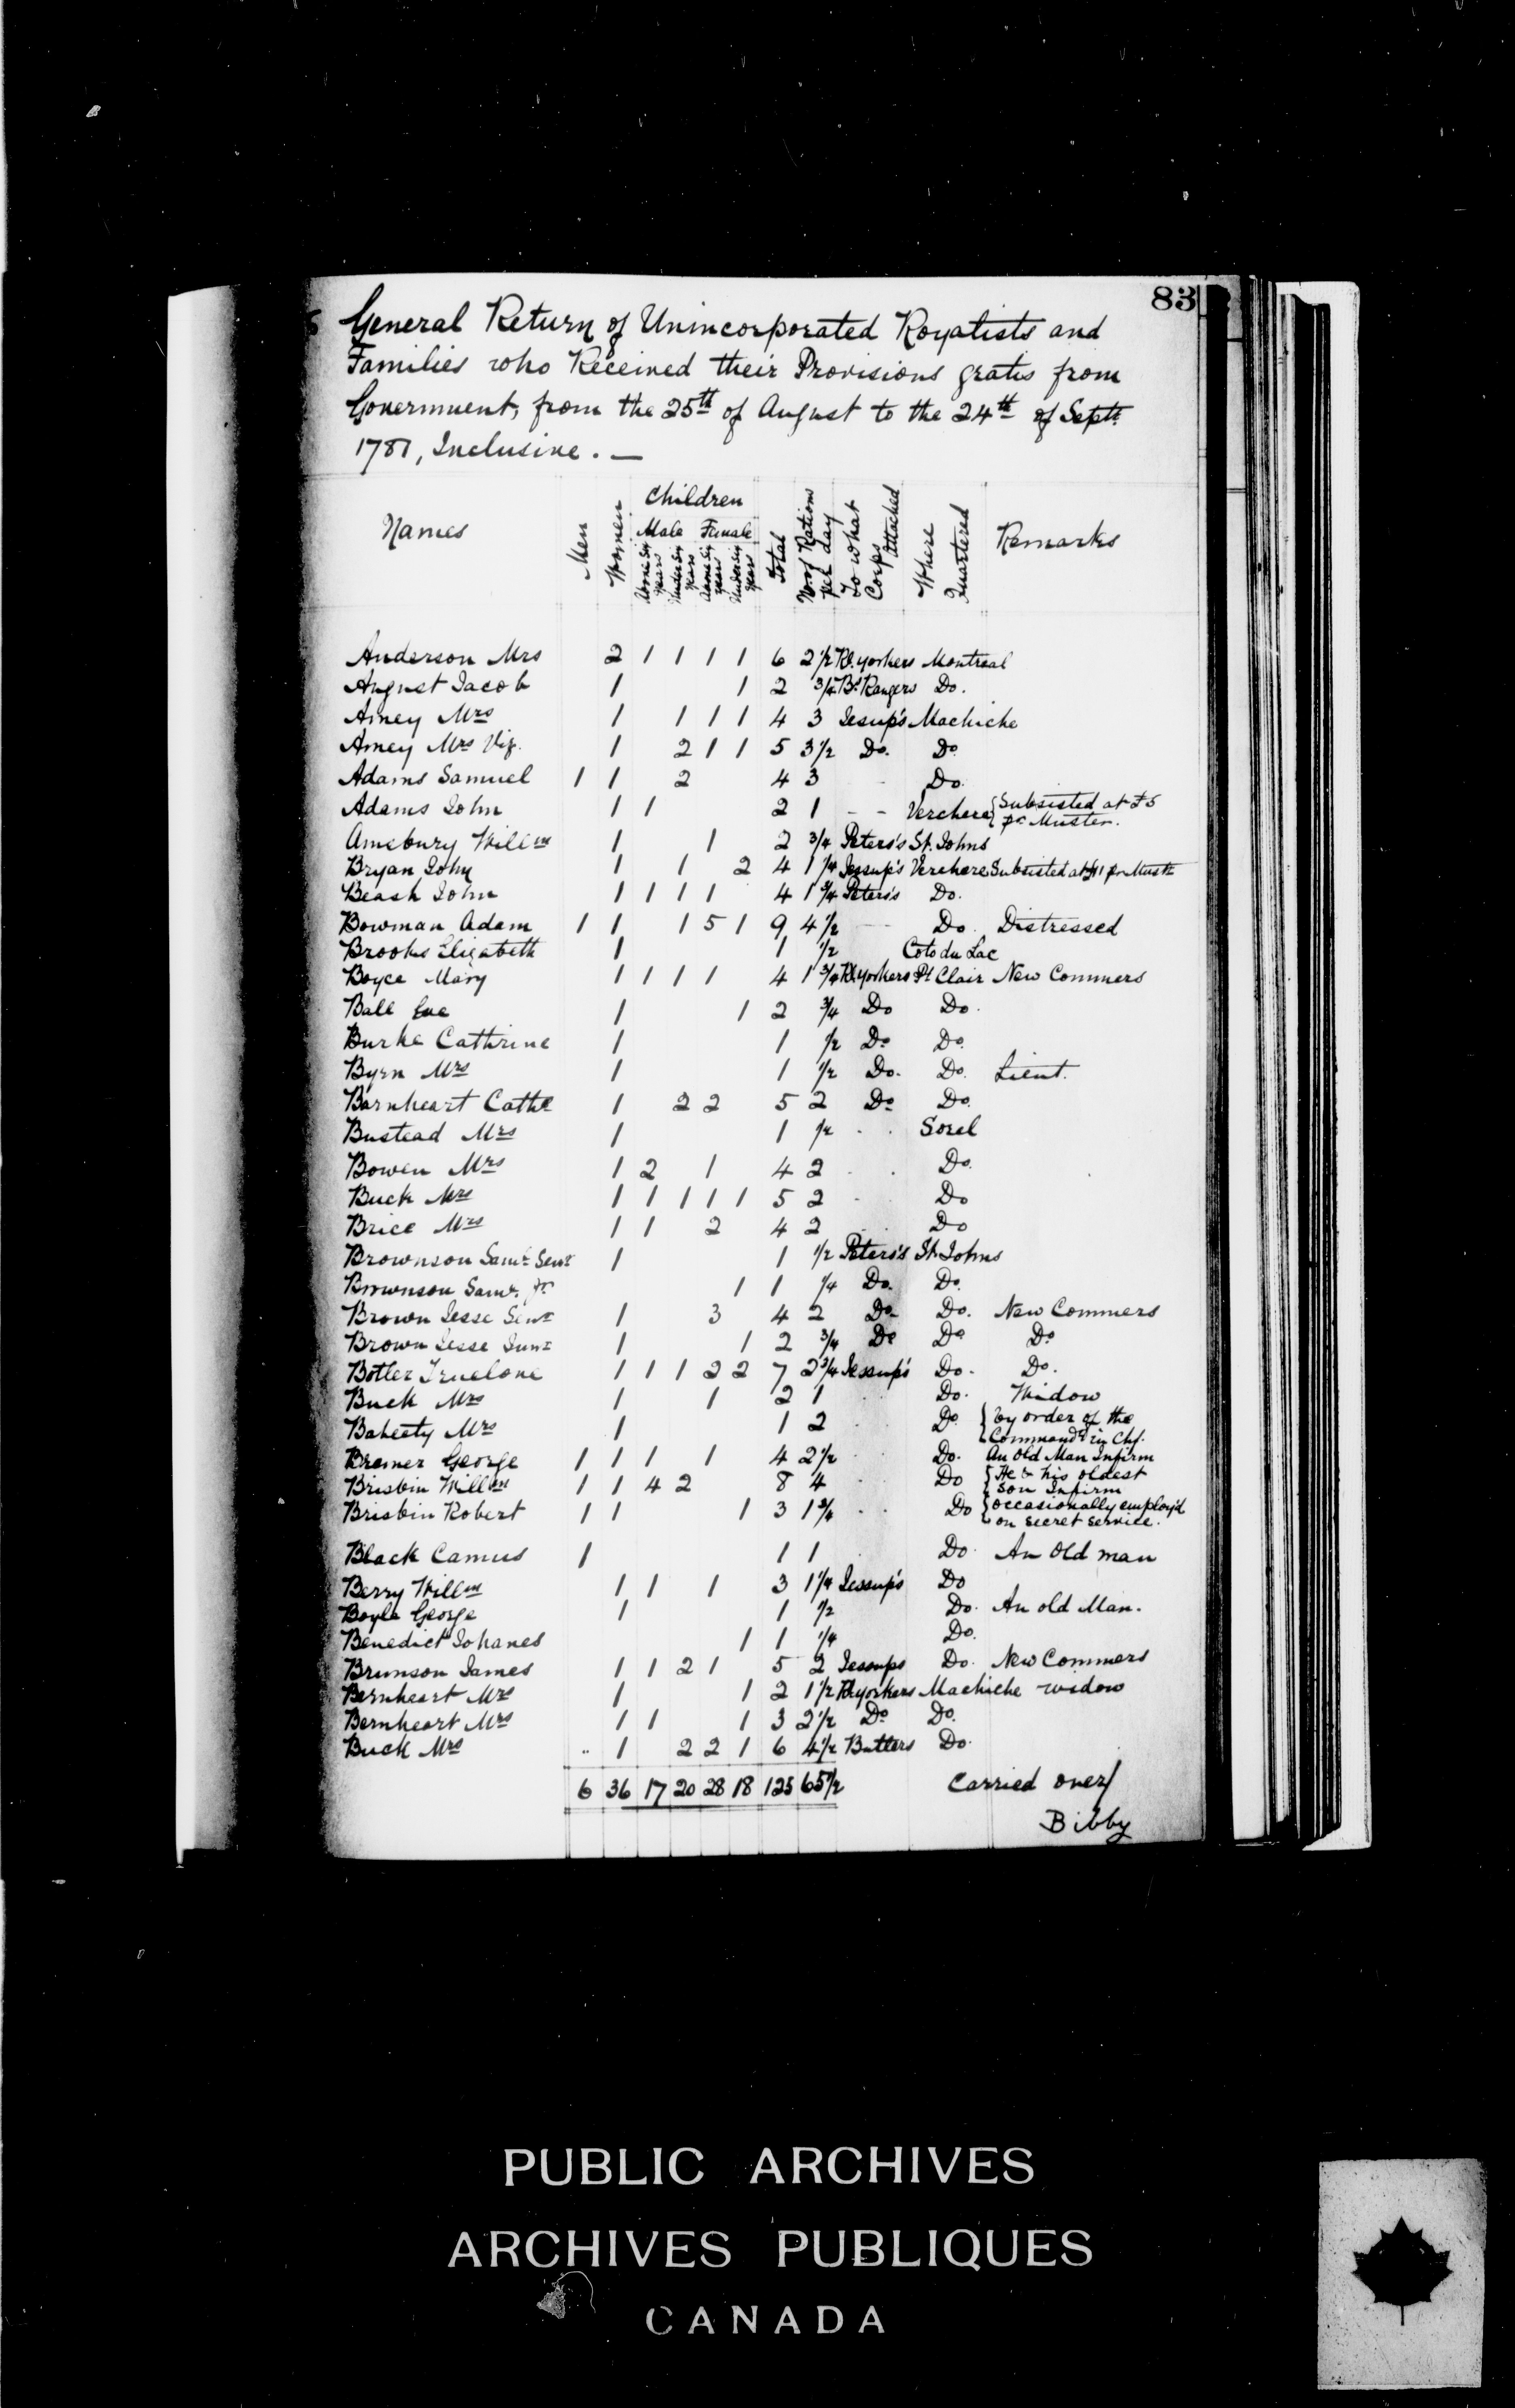 83
General Return of Unincorporated Royalists and
Families who Received their Provisions gratis from
Government, from the 25th of August to the 24th of Septr.
1781, Inclusive. —
Names Men Women Children Male Female Above Six Years Under Six Years Above Six Years Under Six Years Total No of Rations per day To what Corps Attached Where Quartered Remarks
Anderson Mrs 2 1 1 1 1 6 2 1/2 Rl. yorkers Montreal
August Jacob 1 1 2 3/4 Bs. Rangers Do.
Amey Mrs 1 1 1 1 4 3 Jesup's Machiche
Amey Mrs Viz. 1 2 1 1 5 3 1/2 Do. Do
Adams Samuel 1 1 2 4 3 - Do.
Adams John 1 1 2 1 - - Verchere { Subsisted at £5
pr Muster.
Amsbury Willm 1 1 2 3/4 Peters's St. Johns
Bryan John 1 1 2 4 1 1/4 Jessup's Verchere Subsisted at £11 pr Mustr
Beash John 1 1 1 1 4 1 3/4 Peters's Do.
Bowman Adam 1 1 1 5 1 9 4 1/2 - Do. Distressed
Brooks Elizabeth 1 1 1/2 Coto du Lac
Boyce Mary 1 1 1 1 4 1 3/4 Rl. yorkers Pt Clair New Commers
Ball Eve 1 1 2 3/4 Do Do.
Burke Cathrine 1 1 1/2 Do Do.
Byrn Mrs 1 1 1/2 Do. Do. Lieut.
Barnheart Cathe 1 2 2 5 2 Do Do.
Bustead Mrs 1 1 1/2 - . Sorel
Bowen Mrs 1 2 1 4 2 . . Do.
Buck Mrs 1 1 1 1 1 5 2 - Do
Brice Mrs 1 1 2 4 2 . . Do
Brownson Saml Senr 1 1 1/2 Peters's St. Johns
Brownson Saml. Jr. 1 1 1/4 Do. Do.
Brown Jesse Senr 1 3 4 2 Do Do. New Commers
Brown Jesse Junr 1 1 2 3/4 Do Do Do
Botler Truelove 1 1 1 2 2 7 2 3/4 Jessup's Do. Do.
Buck Mrs 1 1 2 1 Do. Widow
Baheaty Mrs 1 1 2 Do { by order of the
Commandr in Chf.
Bremer George 1 1 1 1 4 2 1/2 Do. An Old Man Infirm
Brisbin Willm 1 1 4 2 8 4 . Do { He & his oldest
son Infirm
Brisbin Robert 1 1 1 3 1 3/4 . . Do { occasionally employ'd
on secret service.
Black Camus 1 1 1 Do. An Old man
Berry Willm 1 1 1 3 1 1/4 Jessup's Do
Boyle George 1 1 1/2 Do. An old Man.
Benedict Johanes 1 1 1/4 Do.
Brunson James 1 1 2 1 5 2 Jessups Do. New Commers
Bernheart Mrs 1 1 2 1 1/2 Rl yorkers Machiche widow
Bernheart Mrs 1 1 1 3 2 1/2 Do Do.
Buck Mrs .. 1 2 2 1 6 4 1/2 Butlers Do.
6 36 17 20 28 18 125 65 1/2 Carried over/
Bibby
PUBLIC ARCHIVES
ARCHIVES PUBLIQUES
CANADA